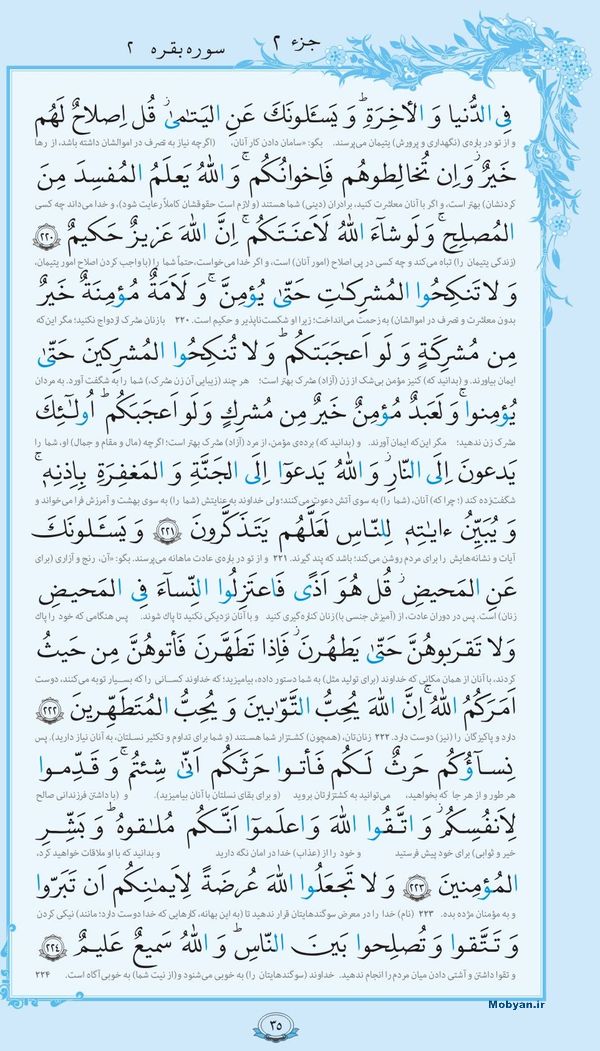 جزء ۲ سوره بقره ۲
فِی الدُّنیا وَ الأخِرَةِ ۗ وَ یَسـَٔلونَكَ عَنِ الیَتـٰمیٰ ۖ قُل اِصلاحٌ لَهُم
و از تو در باره‌ی (نگهداری و پرورش) یتیمان می‌پرسند. بگو: «سامان دادن کار آنان، (اگرچه نیاز به تصرف در اموالشان داشته باشد، از رها
خَیرٌ ۖ وَ اِن تُخالِطوهُم فَاِخوانُكُم ۚ وَ اللهُ یَعلَمُ المُفسِدَ مِنَ
کردنشان) بهتر است، و اگر با آنان معاشرت کنید، برادران (دینی) شما هستند (و لازم است حقوقشان کاملاً رعایت شود)، و خدا می‌داند چه کسی
المُصلِحِ ۚ وَ لَو شاءَ اللهُ لَاَعنَتَكُم ۚ اِنَّ اللهَ عَزیزٌ حَكیمٌ ۲۲۰
(زندگی یتیمان را) تباه می‌کند و چه کسی در پی اصلاح (امور آنان) است، و اگر خدا می‌خواست، حتماً شما را (با واجب کردن اصلاح امور یتیمان،
وَ لا تَنكِحُوا المُشرِكـٰتِ حَتّیٰ یُؤمِنَّ ۚ وَ لَاَمَةٌ مُؤمِنَةٌ خَیرٌ
بدون معاشرت و تصرف در اموالشان) به زحمت می‌انداخت؛ زیرا او شکست‌ناپذیر و حکیم است. ۲۲۰ با زنان مشرک ازدواج نکنید؛ مگر این‌که
مِن مُشرِكَةٍ وَ لَو اَعجَبَتكُم ۗ وَ لا تُنكِحُوا المُشرِكینَ حَتّیٰ
ایمان بیاورند. و (بدانید که) کنیز مؤمن بی‌شک از زن (آزاد) مشرک بهتر است؛ هر چند (زیبایی آن زن مشرک،) شما را به شگفت آورد. به مردان
یُؤمِنوا ۚ وَ لَعَبدٌ مُؤمِنٌ خَیرٌ مِن مُشرِكٍ وَ لَو اَعجَبَكُم ۗ اُولـٰئِكَ
مشرک زن ندهید؛ مگر این‌که ایمان آورند. و (بدانید که) برده‌ی مؤمن، از مرد (آزاد) مشرک بهتر است؛ اگرچه (مال و مقام و جمال) او، شما را
یَدعونَ اِلَی النّارِ ۖ وَ اللهُ یَدعوا اِلَی الجَنَّةِ وَ المَغفِرَةِ بِاِذنِهٖ ۖ
شگفت‌زده کند (؛ چرا که) آنان، (شما را) به سوی آتش دعوت می‌کنند؛ ولی خداوند به عنایتش (شما را) به سوی بهشت و آمرزش فرا می‌خواند و
وَ یُبَیِّنُ ءایـٰتِهٖ لِلنّاسِ لَعَلَّهُم یَتَذَكَّرونَ ۲۲۱ وَ یَسـَٔلونَكَ
آیات و نشانه‌هایش را برای مردم روشن می‌کند؛ باشد که پند گیرند. ۲۲۱ و از تو در باره‌ی عادت ماهانه می‌پرسند. بگو: «آن، رنج و آزاری (برای
عَنِ المَحیضِ ۖ قُل هُوَ اَذًی فَاعتَزِلُوا النِّساءَ فِی المَحیضِ
زنان) است. پس در دوران عادت، از (آمیزش جنسی با) زنان کناره‌گیری کنید و با آنان نزدیکی نکنید تا پاک شوند. پس هنگامی که خود را پاک
وَ لا تَقرَبوهُنَّ حَتّیٰ یَطهُرنَ ۖ فَاِذا تَطَهَّرنَ فَأتوهُنَّ مِن حَیثُ
کردند، با آنان از همان مکانی که خداوند (برای تولید مثل) به شما دستور داده، بیامیزید؛ که خداوند کسانی را که بسیار توبه می‌کنند، دوست
اَمَرَكُمُ اللهُ ۚ اِنَّ اللهَ یُحِبُّ التَّوّابینَ وَ یُحِبُّ المُتَطَهِّرینَ ۲۲۲
دارد و پاکیزگان را (نیز) دوست دارد. ۲۲۲ زنان‌تان، (همچون) کشتزار شما هستند (و شما برای تداوم و تکثیر نسلتان، به آنان نیاز دارید). پس
نِساؤُكُم حَرثٌ لَكُم فَأتوا حَرثَكُم اَنّیٰ شِئتُم ۖ وَ قَدِّموا
هر طور و از هر جا که بخواهید، می‌توانید به کشتزارتان بروید (و برای بقای نسلتان با آنان بیامیزید). و (با داشتن فرزندانی صالح
لِاَنفُسِكُم ۚ وَ اتَّقُوا اللهَ وَ اعلَموا اَنَّكُم مُلـٰقوهُ ۗ وَ بَشِّرِ
خیر و ثوابی) برای خود پیش فرستید و خود را از (عذاب) خدا در امان نگه دارید و بدانید که با او ملاقات خواهید کرد،
المُؤمِنینَ ۲۲۳ وَ لا تَجعَلُوا اللهَ عُرضَةً لِاَیمـٰنِكُم اَن تَبَرّوا
و به مؤمنان مژده بده. ۲۲۳ (نام) خدا را در معرض سوگندهایتان قرار ندهید تا (به این بهانه، کارهایی که خدا دوست دارد؛ مانند) نیکی کردن
وَ تَتَّقوا وَ تُصلِحوا بَینَ النّاسِ ۗ وَ اللهُ سَمیعٌ عَلیمٌ ۲۲۴
و تقوا داشتن و آشتی دادن میان مردم را انجام ندهید. خداوند (سوگندهایتان را) به خوبی می‌شنود و (از نیت شما) به خوبی آگاه است. ۲۲۴
Mobyan.ir
۳۵